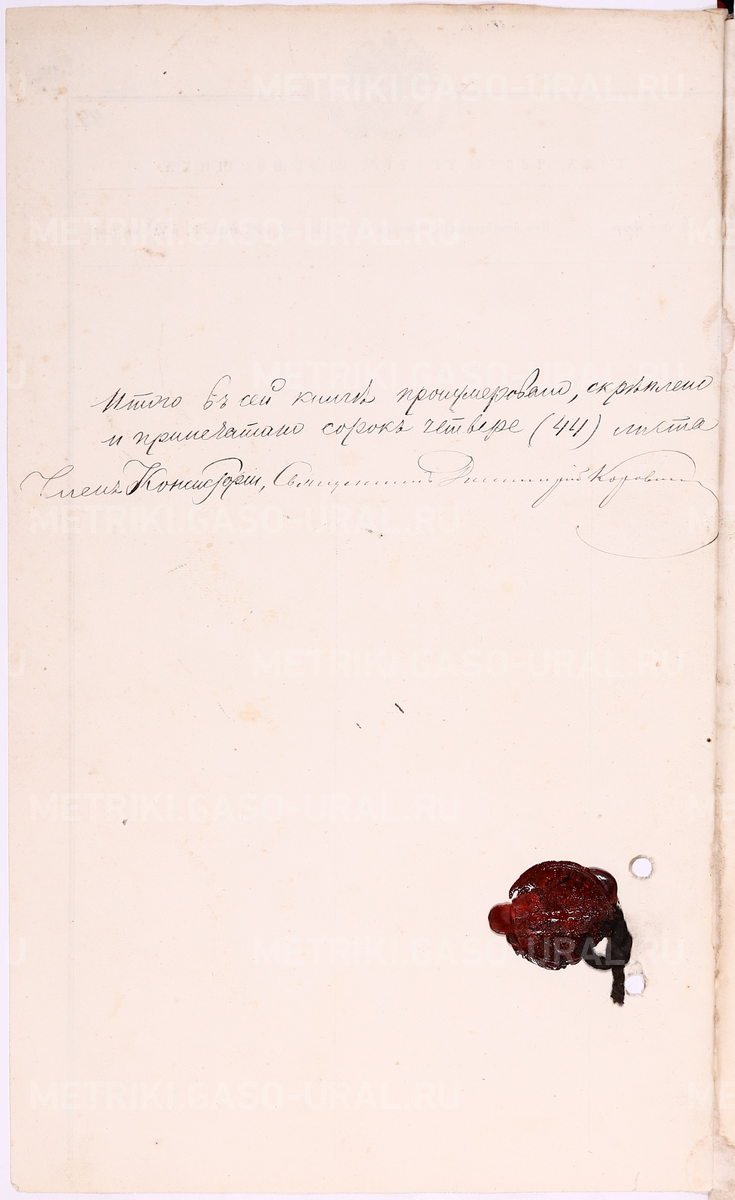 METRIKI.GASO-URAL.RU
METRIKI.GASO-URAL.RU
Итого въ сей книгѣ пронумеровано, скрѣплено
и припечатано сорокъ четыре (44) листа
Членъ Консисторіи, Священникъ Димитрій Коровин
METRIKI.GASO-URAL.RU
METRIKI.GASO-URAL.RU
METRIKI.GASO-URAL.RU
METRIKI.GASO-URAL.RU
METRIKI.GASO-URAL.RU